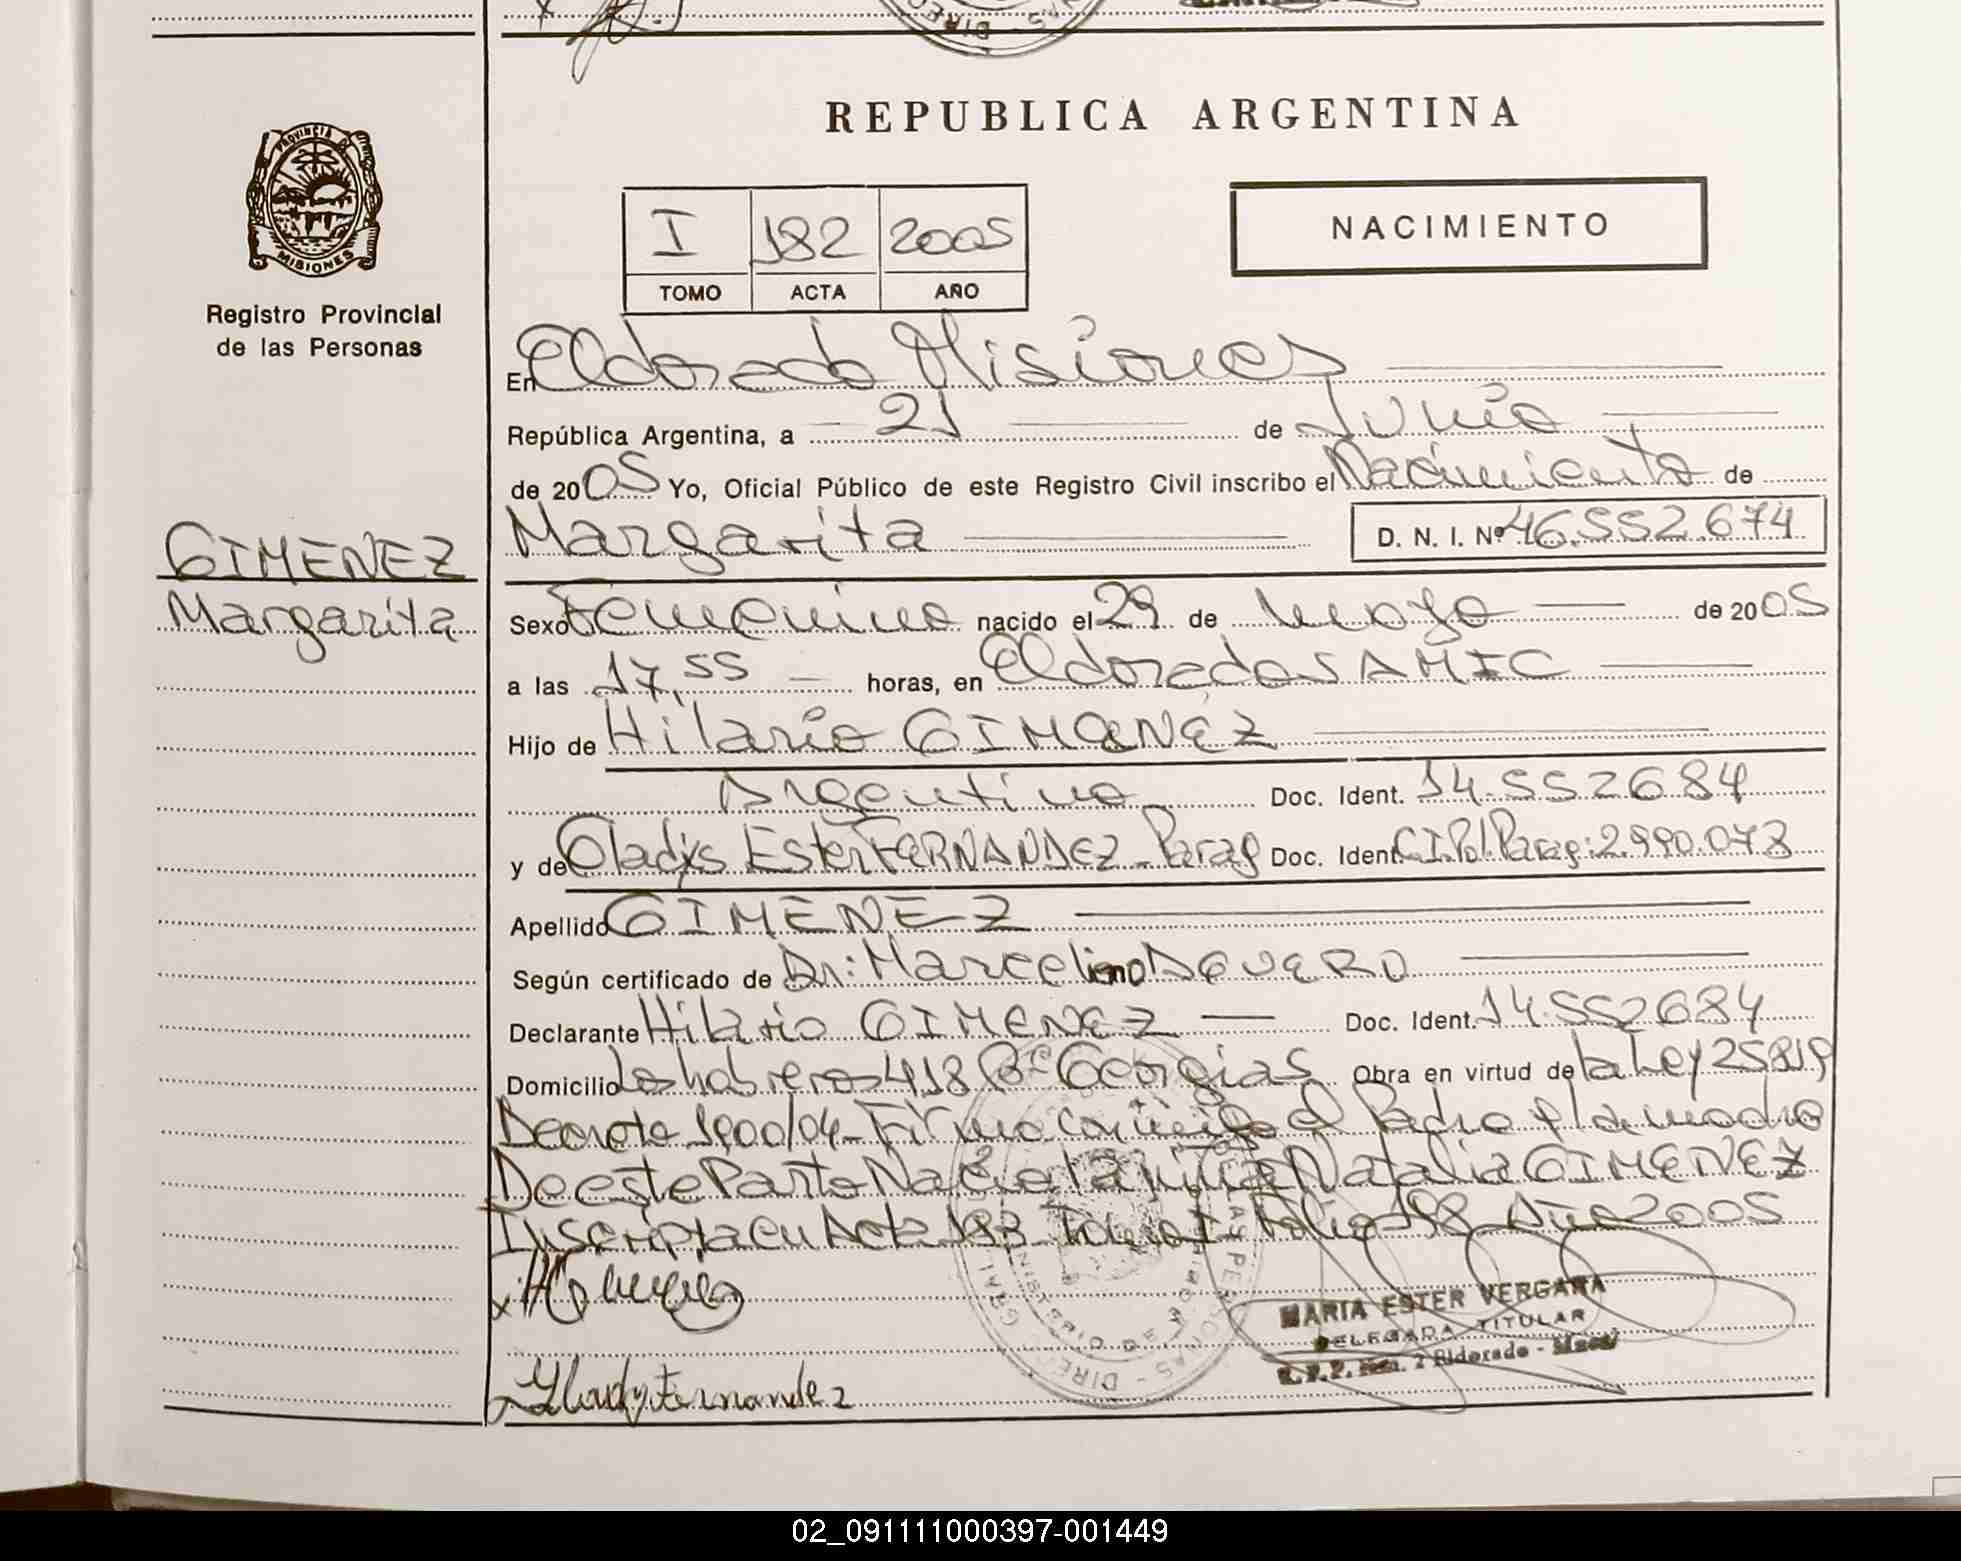 REPUBLICA ARGENTINA
PROVINCIA DE
MISIONES
Registro Provincial
de las Personas
I 182 2005
TOMO ACTA AÑO
NACIMIENTO
En Eldorado Misiones
República Argentina, a 21 de Junio
de 2005 Yo, Oficial Público de este Registro Civil inscribo el Nacimiento de
GIMENEZ
Margarita
Margarita D. N. I. Nº 46.552.674
Sexo Femenino nacido el 29 de mayo de 2005
a las 17,55 horas, en Eldorado SAMIC
Hijo de Hilario GIMENEZ
Argentino Doc. Ident. 14.552684
y de Gladys Ester FERNANDEZ Parag Doc. Ident. C.I.Pol.Parag:2.990.078
Apellido GIMENEZ
Según certificado de Dr: Marcelino DEVERO
Declarante Hilario GIMENEZ Doc. Ident. 14.552684
Domicilio Los habreros 418 Bº Georgias Obra en virtud de la Ley 25819
Decreto 1900/04 Firma conmigo el Padre y la madre
De este Parto Nacio tambien Natalia GIMENEZ
Inscripta en Acta 183 Tomo I Folio 198 Año 2005
MARIA ESTER VERGARA
DELEGADA TITULAR
R.P.P. 2 Eldorado - Mnes
Glady Fernandez
02_091111000397-001449